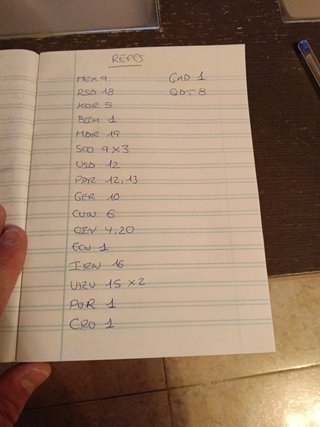 REPES
MEX 9
RSA 18
KOR 5
BIH 1
MAR 19
SCO 9 x3
USA 12
PAR 12, 13
GER 10
CUW 6
CIV 4, 20
ECU 1
IRN 16
URU 15 x2
POR 1
CRO 1
GHA 1
QAT 8